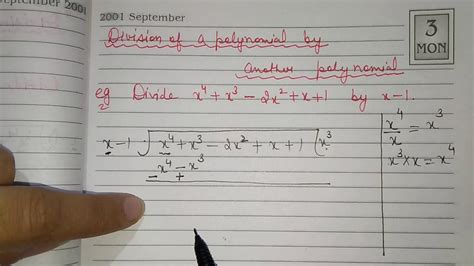 September 2001
2001 September
3
MON
Division of a polynomial by
another polynomial
eg Divide x⁴ + x³ - 2x² + x + 1 by x - 1.
x - 1 √ x⁴ + x³ - 2x² + x + 1 ( x³
x⁴ - x³
- +
x⁴/x = x³
x³ × x = x⁴